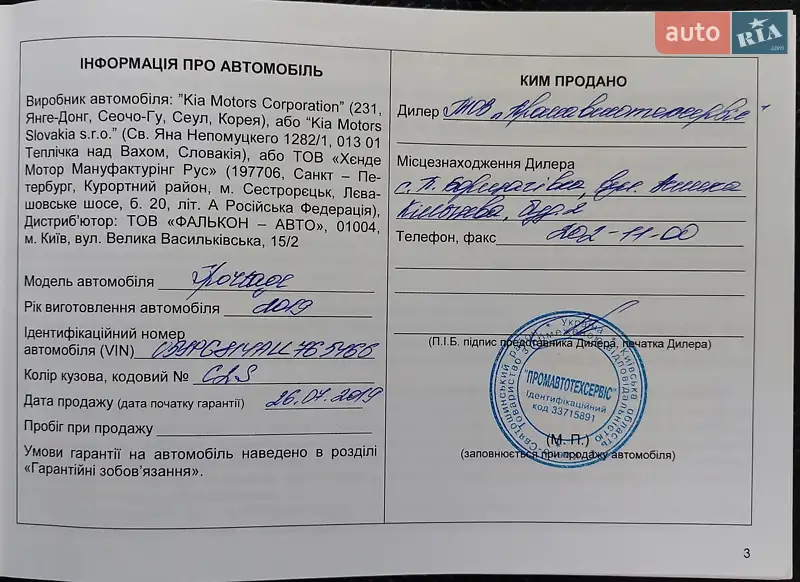 auto RIA.com
ІНФОРМАЦІЯ ПРО АВТОМОБІЛЬ
Виробник автомобіля: "Kia Motors Corporation" (231,
Янге-Донг, Сеочо-Гу, Сеул, Корея), або "Kia Motors
Slovakia s.r.o." (Св. Яна Непомуцкего 1282/1, 013 01
Теплічка над Вахом, Словакія), або ТОВ «Хєнде
Мотор Мануфактурінг Рус» (197706, Санкт – Пе-
тербург, Курортний район, м. Сестрорєцьк, Лєва-
шовське шосе, б. 20, літ. А Російська Федерація),
Дистриб'ютор: ТОВ «ФАЛЬКОН – АВТО», 01004,
м. Київ, вул. Велика Васильківська, 15/2
Модель автомобіля
Рік виготовлення автомобіля 2019
Ідентифікаційний номер
автомобіля (VIN)
Колір кузова, кодовий №
Дата продажу (дата початку гарантії) 26.07.2019
Пробіг при продажу
Умови гарантії на автомобіль наведено в розділі
«Гарантійні зобов'язання».
КИМ ПРОДАНО
Дилер ТОВ „Промавтотехсервіс"
Місцезнаходження Дилера
Телефон, факс 202-11-00
(П.І.Б. підпис представника Дилера, печатка Дилера)
Україна
"ПРОМАВТОТЕХСЕРВІС"
Ідентифікаційний
код 33715891
(М. П.)
(заповнюється при продажу автомобіля)
3